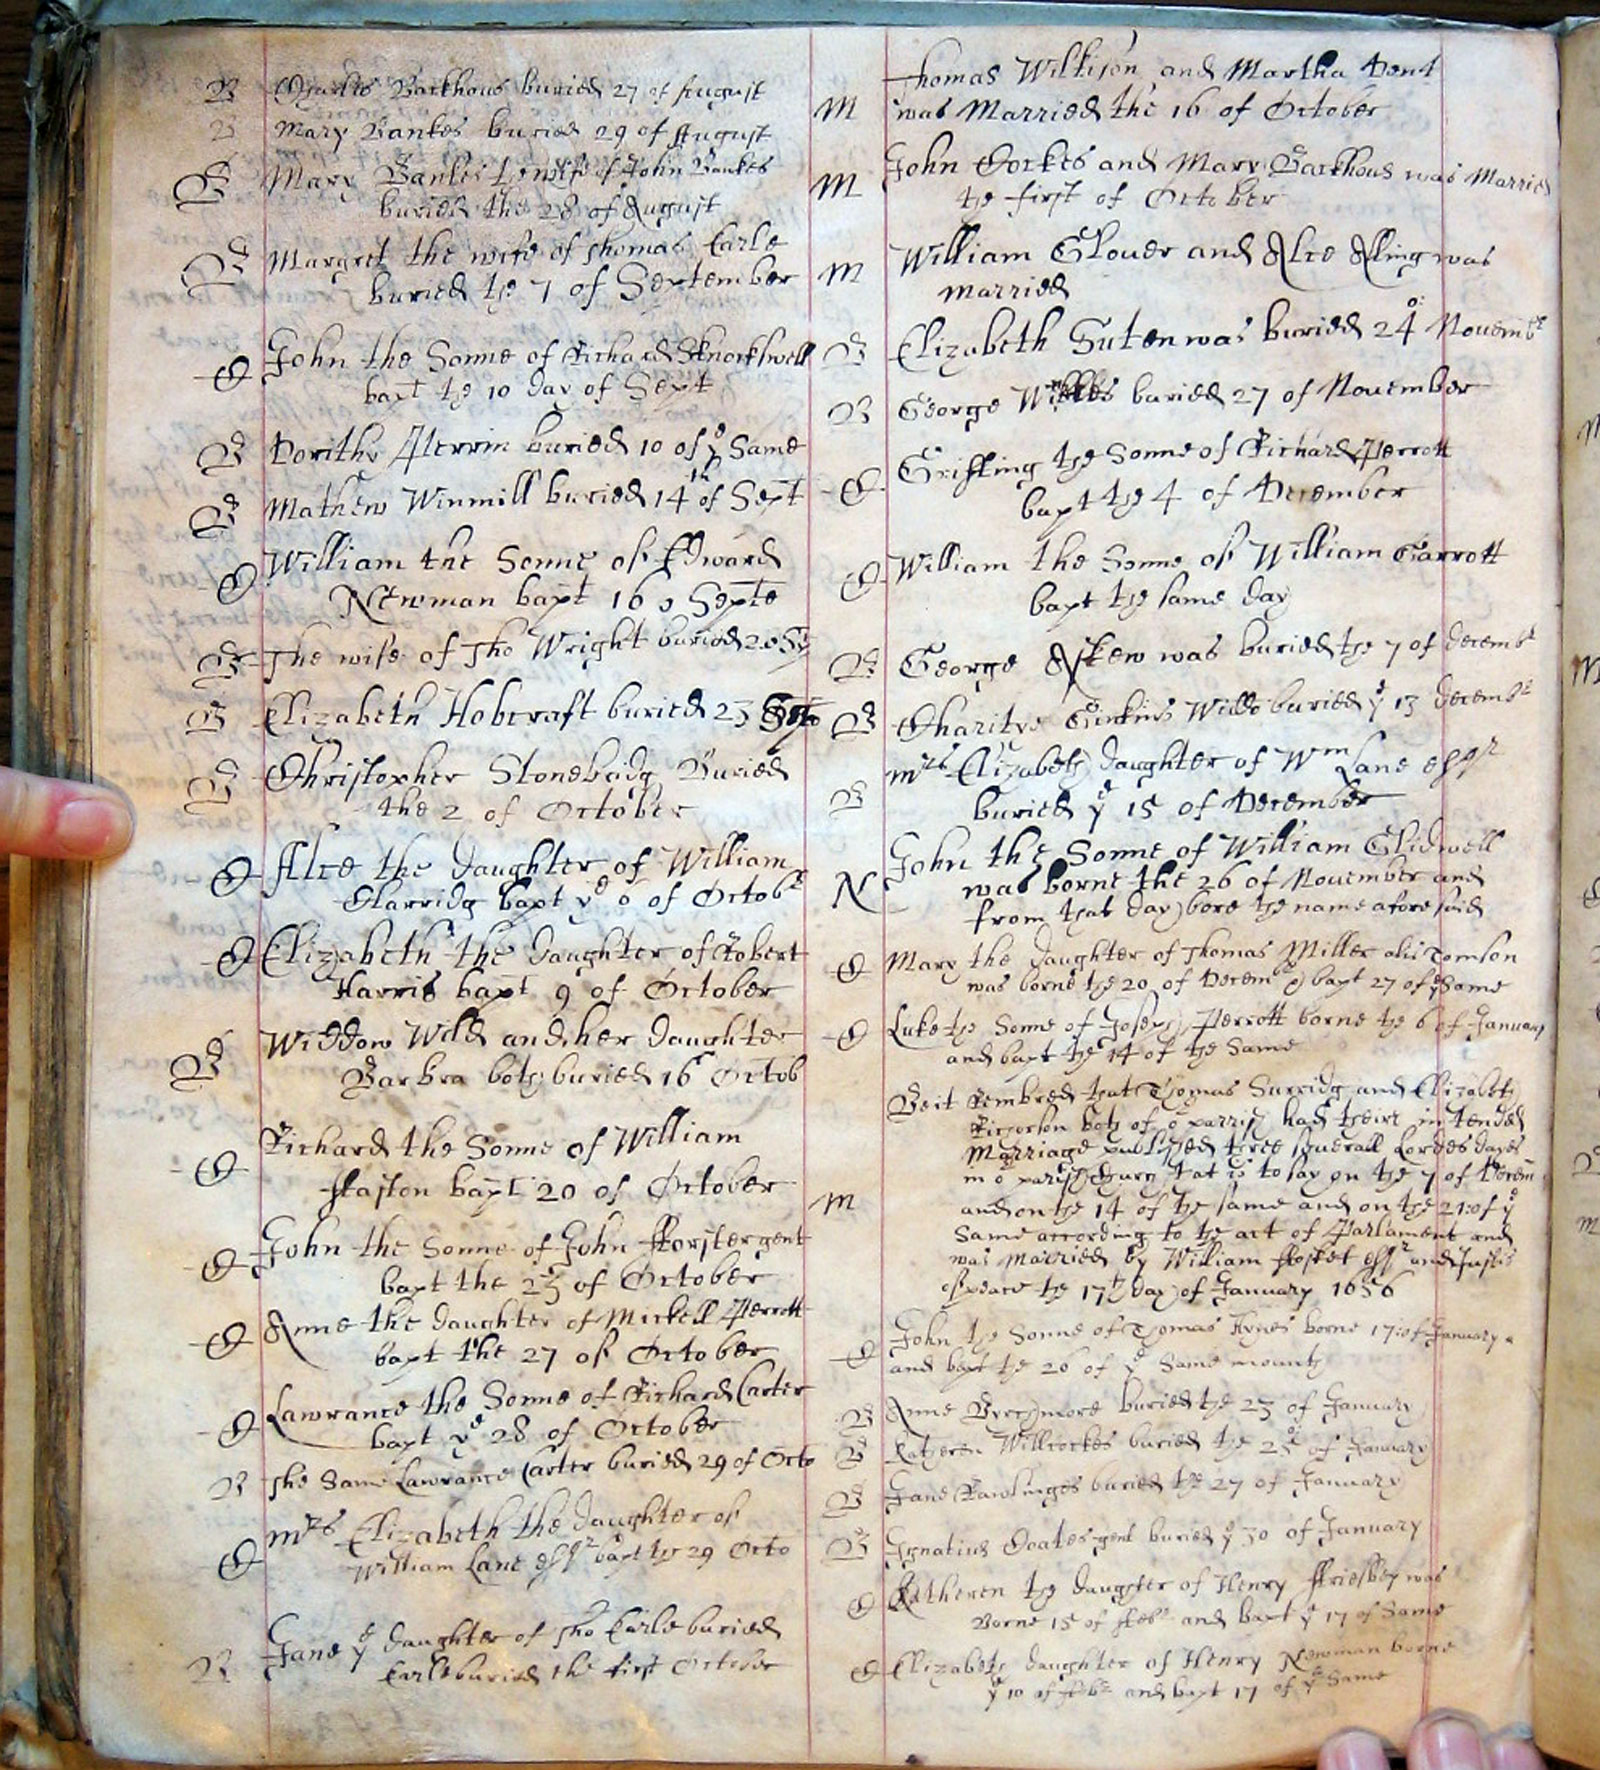 B Charles Backhous buried 27 of August
B Mary Bankes buried 29 of August
B Mary Bankes the wife of John Bankes
buried the 28 of August
B Margret the wife of Thomas Earle
buried the 7 of September
C John the Sonne of Richard
bapt the 10 day of Sept
B Dorithy Perrin buried 10 of ye Same
B Mathew Winmill buried 14th of Sept
C William the Sonne of Edward
Newman bapt 16 o Septe
B The wife of Tho Wright buried
B Elizabeth Hobcraft buried 23
B Christopher Stonebridg Buried
the 2 of October
C Alce the Daughter of William
bapt ye of Octobr
C Elizabeth the Daughter of Robert
Harris bapt 9 of October
B Widdow Wild and her Daughter
Barbra both buried 16 Octob
C Richard the Sonne of William
bapt 20 of October
C John the Sonne of John fforster gent
bapt the 23 of October
C Anne the Daughter of Mickell Perrott
bapt the 27 of October
C Lawrance the Sonne of Richard Carter
bapt ye 28 of October
B The Same Lawrance Carter buried 29 of Octo
C Mrs Elizabeth the Daughter of
William Lane esqr bapt the 29 Octo
B Jane ye daughter of Tho Earle buried
Earle buried the first October
Thomas Willison and Martha Dent
M was Married the 16 of October
John Cockes and Mary Backhous was Married
M the first of October
M William Glover and Alce Aling was
Married
B Elizabeth Suten was buried 24 Novembr
B George buried 27 of November
Griffing the Sonne of Richard Perrott
C bapt the 4 of December
C William the Sonne of William Garrott
bapt the same day
B George Askew was buried the 7 of Decembr
B Charitye buried ye 13 Decembr
Mrs Elizabeth daughter of Wm Lane esqr
B buried ye 15 of December
John the Sonne of William Glidwell
N was borne the 26 of November and
from that day bore the name aforesaid
C Mary the daughter of Thomas Miller alis Tomson
was borne the 20 of Decem bapt 27 of ye Same
C Luke the Sonne of Joseph Perrott borne the 6 of January
and bapt the 14 of the Same
Be it Rembred that Thomas Surridg and Elizabeth
both of o parrish had theire intended
Marriage published three severall Lordes dayes
in o parish church that is to say on the 7 of Decem
M and on the 14 of the same and on the 21: of ye
Same according to the act of Parlament and
was Married by William esqr and Justis
of peace the 17th day of January 1656
C John the Sonne of Thomas Hynes borne 17: of January
and bapt the 26 of ye Same mounth
B Anne Byrchmore buried the 23 of January
B Catheren Willcockes buried the of January
B Jane Rawlinges buried the 27 of January
B Ignatius Coates gent buried ye 30 of January
C Katheren the Daughter of Henry was
Borne 15 of Febr and bapt ye 17 of Same
C Elizabeth Daughter of Henry Newman borne
ye 10 of Febr and bapt 17 of ye Same